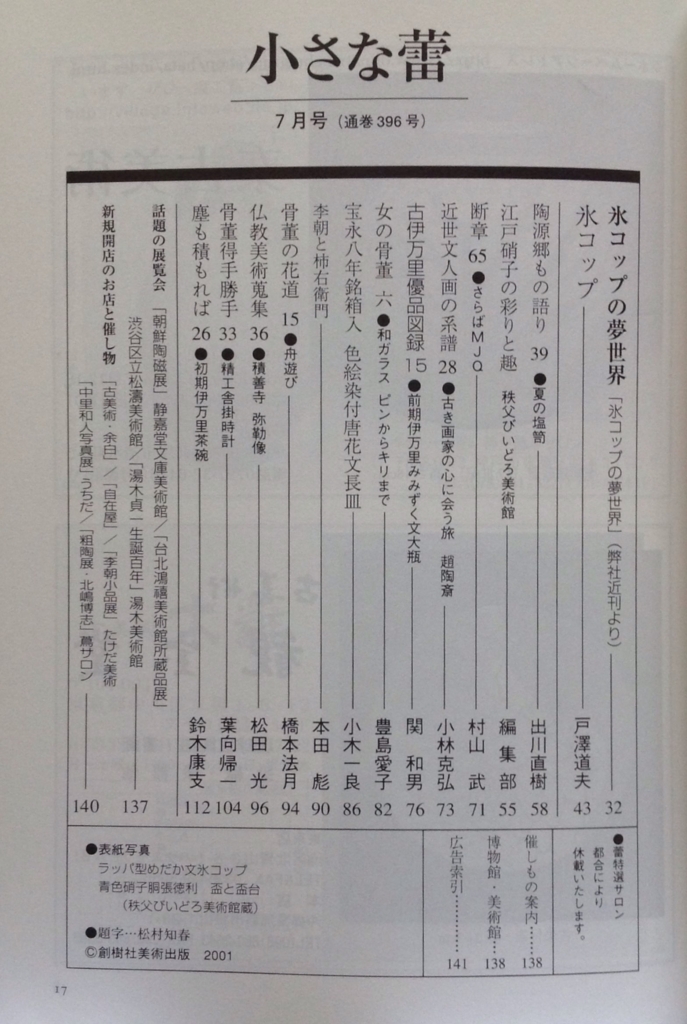 小さな蕾
7月号（通巻396号）
氷コップの夢世界 「氷コップの夢世界」（弊社近刊より） 32
氷コップ 戸澤道夫 43
陶源郷もの語り 39 ●夏の塩笥 出川直樹 58
江戸硝子の彩りと趣 秩父びいどろ美術館 編集部 55
断章 65 ●さらばMJQ 村山 武 71
近世文人画の系譜 28 ●古き画家の心に会う旅 趙陶斎 小林克弘 73
古伊万里優品図録 15 ●前期伊万里みみずく文大瓶 関 和男 76
女の骨董 六 ●和ガラス ピンからキリまで 豊島愛子 82
宝永八年銘箱入 色絵染付唐花文長皿 小木一良 86
李朝と柿右衛門 本田 彪 90
骨董の花道 15 ●舟遊び 橋本法月 94
仏教美術蒐集 36 ●積善寺 弥勒像 松田 光 96
骨董得手勝手 33 ●精工舎掛時計 葉向帰一 104
塵も積もれば 26 ●初期伊万里茶碗 鈴木康支 112
話題の展覧会 「朝鮮陶磁展」静嘉堂文庫美術館／「台北鴻禧美術館所蔵品展」
渋谷区立松濤美術館／「湯木貞一生誕百年」湯木美術館 137
新規開店のお店と催し物 「古美術・余白」／「自在屋」／「李朝小品展」たけだ美術
「中里和人写真展」うちだ／「粗陶展・北嶋博志」蔦サロン 140
●蕾特選サロン
都合により
休載いたします。
催しもの案内……138
博物館・美術館…138
広告索引…………141
●表紙写真
ラッパ型めだか文氷コップ
青色硝子胴張徳利 盃と盃台
（秩父びいどろ美術館蔵）
●題字…松村知春
©創樹社美術出版 2001
17